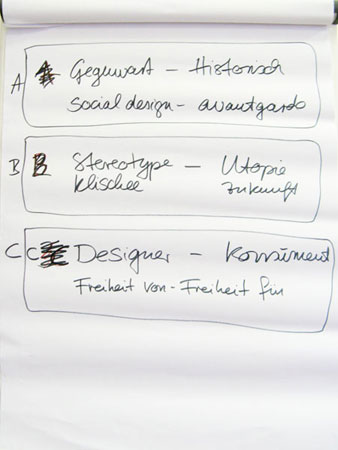 A Gegenwart – Historisch
social design – avantgarde
B B Stereotype – Utopie
Klischee Zukunft
C C Designer – Konsument
Freiheit von – Freiheit für